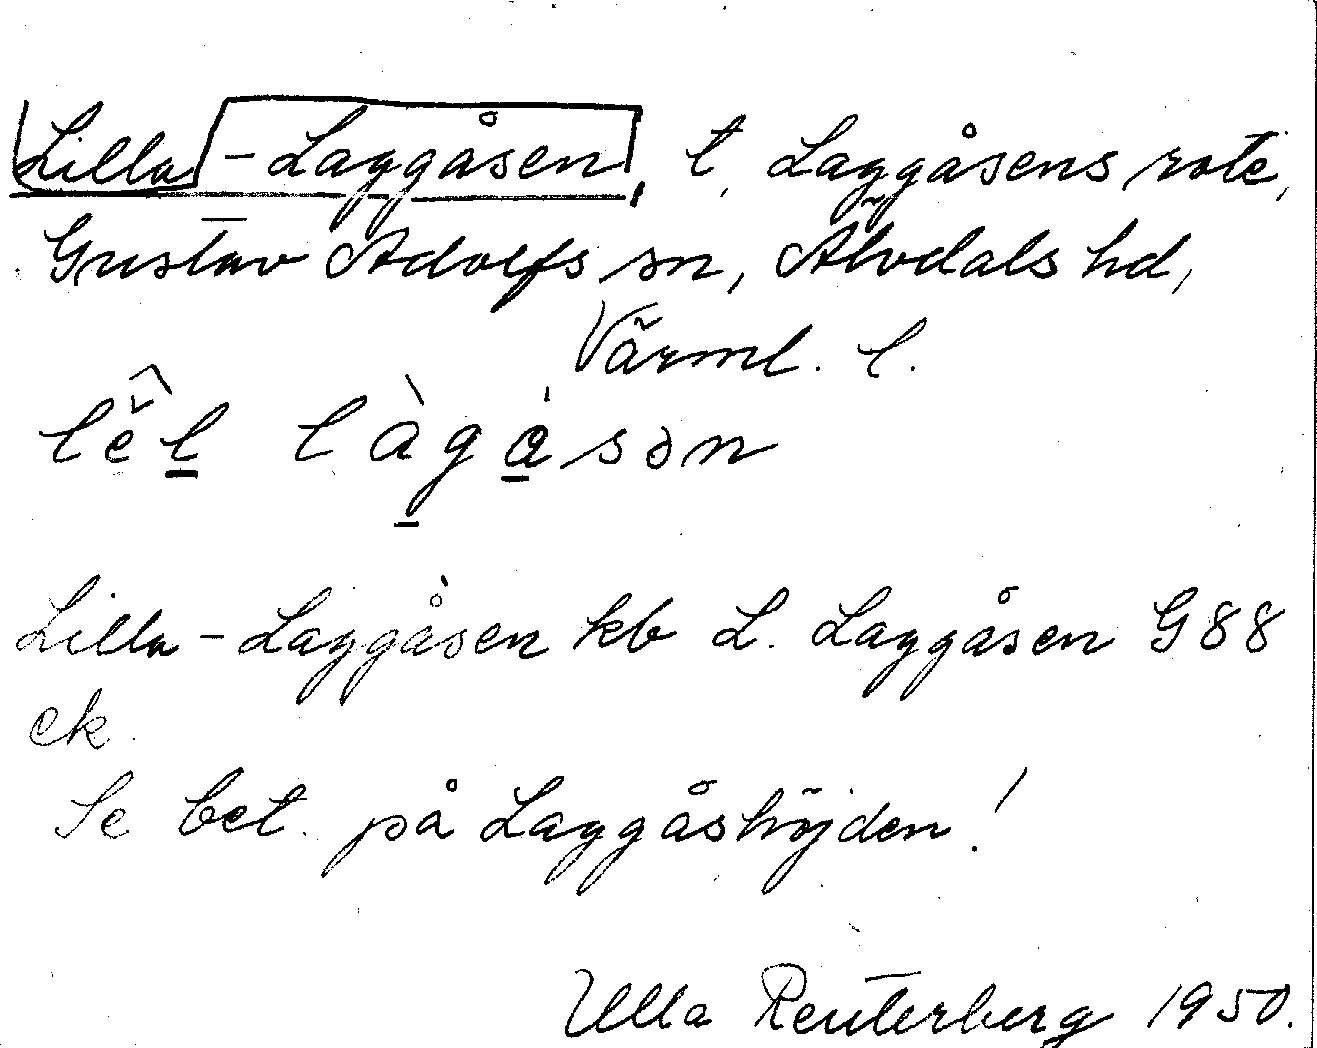 Lilla-Laggåsen, t, Laggåsens rote,
Gustav Adolfs sn, Älvdals hd,
Värml. l.
lĕ̂l làgåsən
Lilla-Laggåsen kb L. Laggåsen G88
ek.
Se bet. på Laggåshöjden!
Ulla Reuterberg 1950.